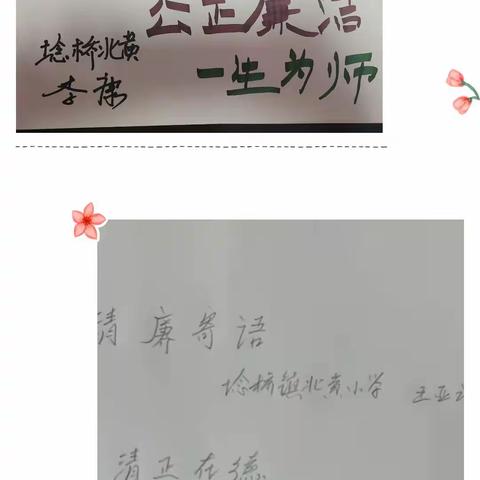 公正廉洁
埝桥北黄
一生为师
李
清廉寄语
埝桥镇北黄小学 王亚
清正在德